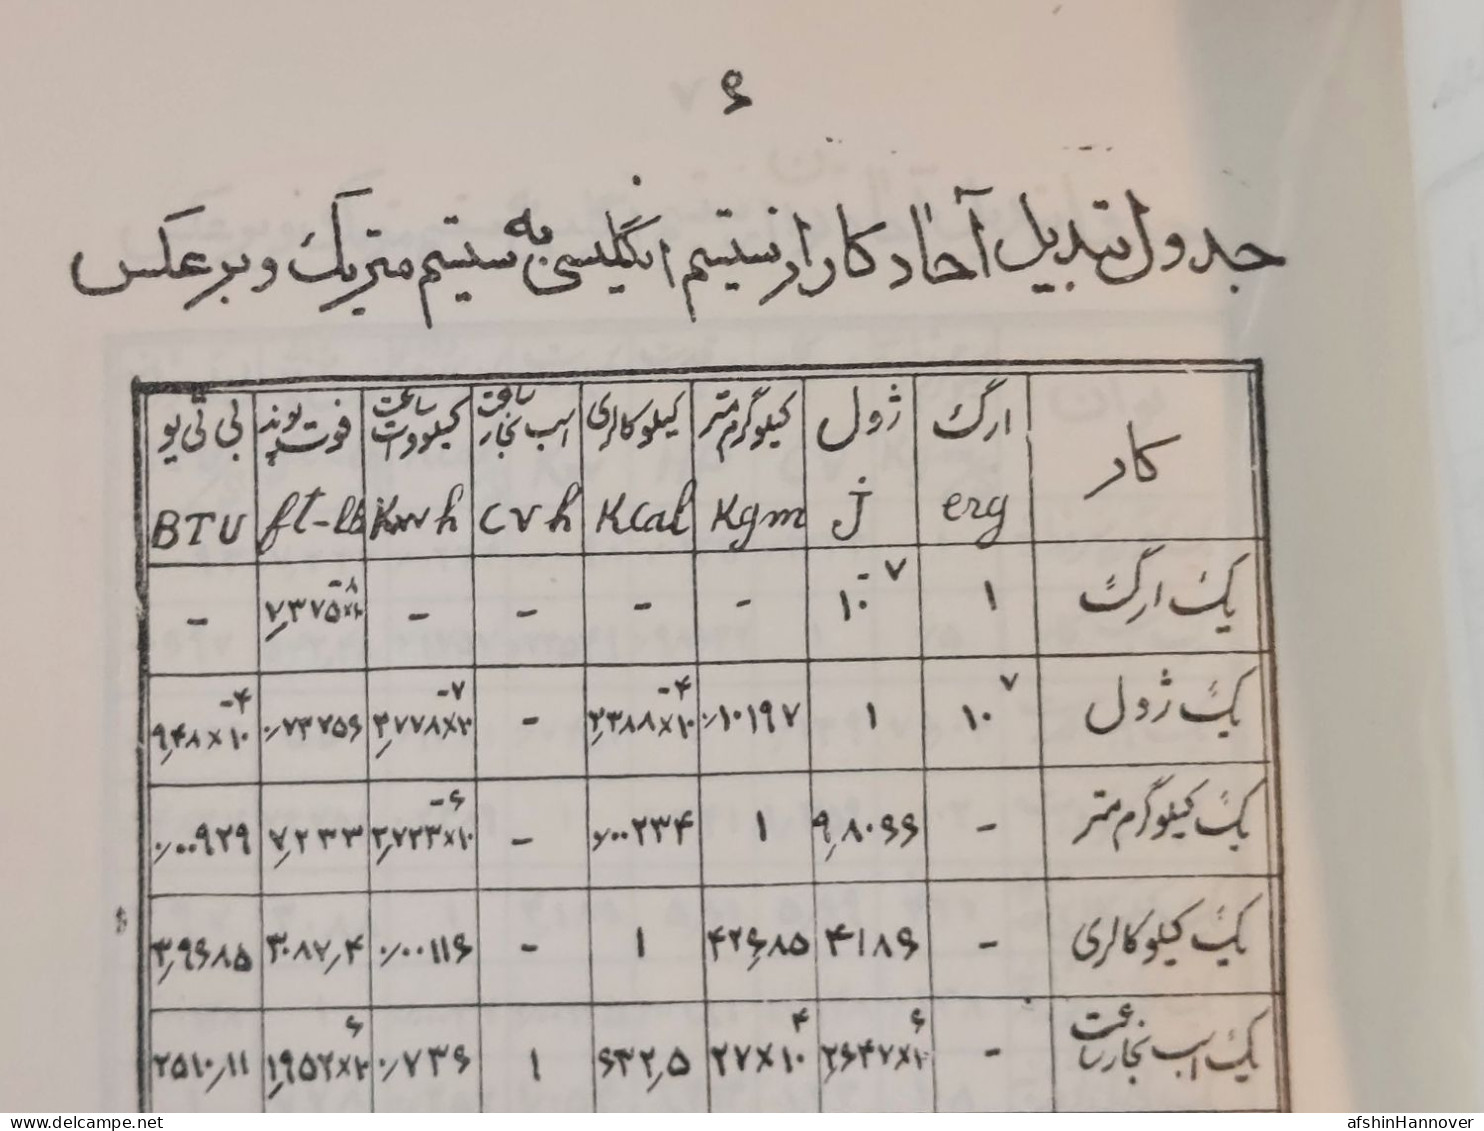 ۶
جدول تبدیل آحاد کار از سیستم انگلیسی به سیستم متریک و برعکس
کار ارگ ژول کیلوگرم متر کیلو کالری اسب بخار ساعت کیلووات ساعت فوت پوند بی تی یو
erg j Kgm Kcal CVh Kwh ft-lb BTU
یک ارگ ۱ ۱۰⁻۷ - - - - ۷,۳۷۵×۱۰⁻۸ -
یک ژول ۱۰۷ ۱ ۰/۱۰۱۹۷ ۲,۳۸۸×۱۰⁻۴ - ۲,۷۷۸×۱۰⁻۷ ۰/۷۳۷۵۶ ۹,۴۸×۱۰⁻۴
یک کیلوگرم متر - ۹,۸۰۶۶ ۱ ۰/۰۰۲۳۴ - ۲,۷۲۳×۱۰⁻۶ ۷,۲۳۳ ۰/۰۰۹۲۹
یک کیلو کالری - ۴۱۸۶ ۴۲۶,۸۵ ۱ - ۰/۰۰۱۱۶ ۳۰۸۷,۴ ۳,۹۶۸۵
یک اسب بخار ساعت - ۲,۶۴۷×۱۰۶ ۲۷×۱۰۴ ۶۳۲,۵ ۱ ۰/۷۳۶ ۱,۹۵۲×۱۰۶ ۲۵۱۰,۱۱
www.delcampe.net
afshinHannover